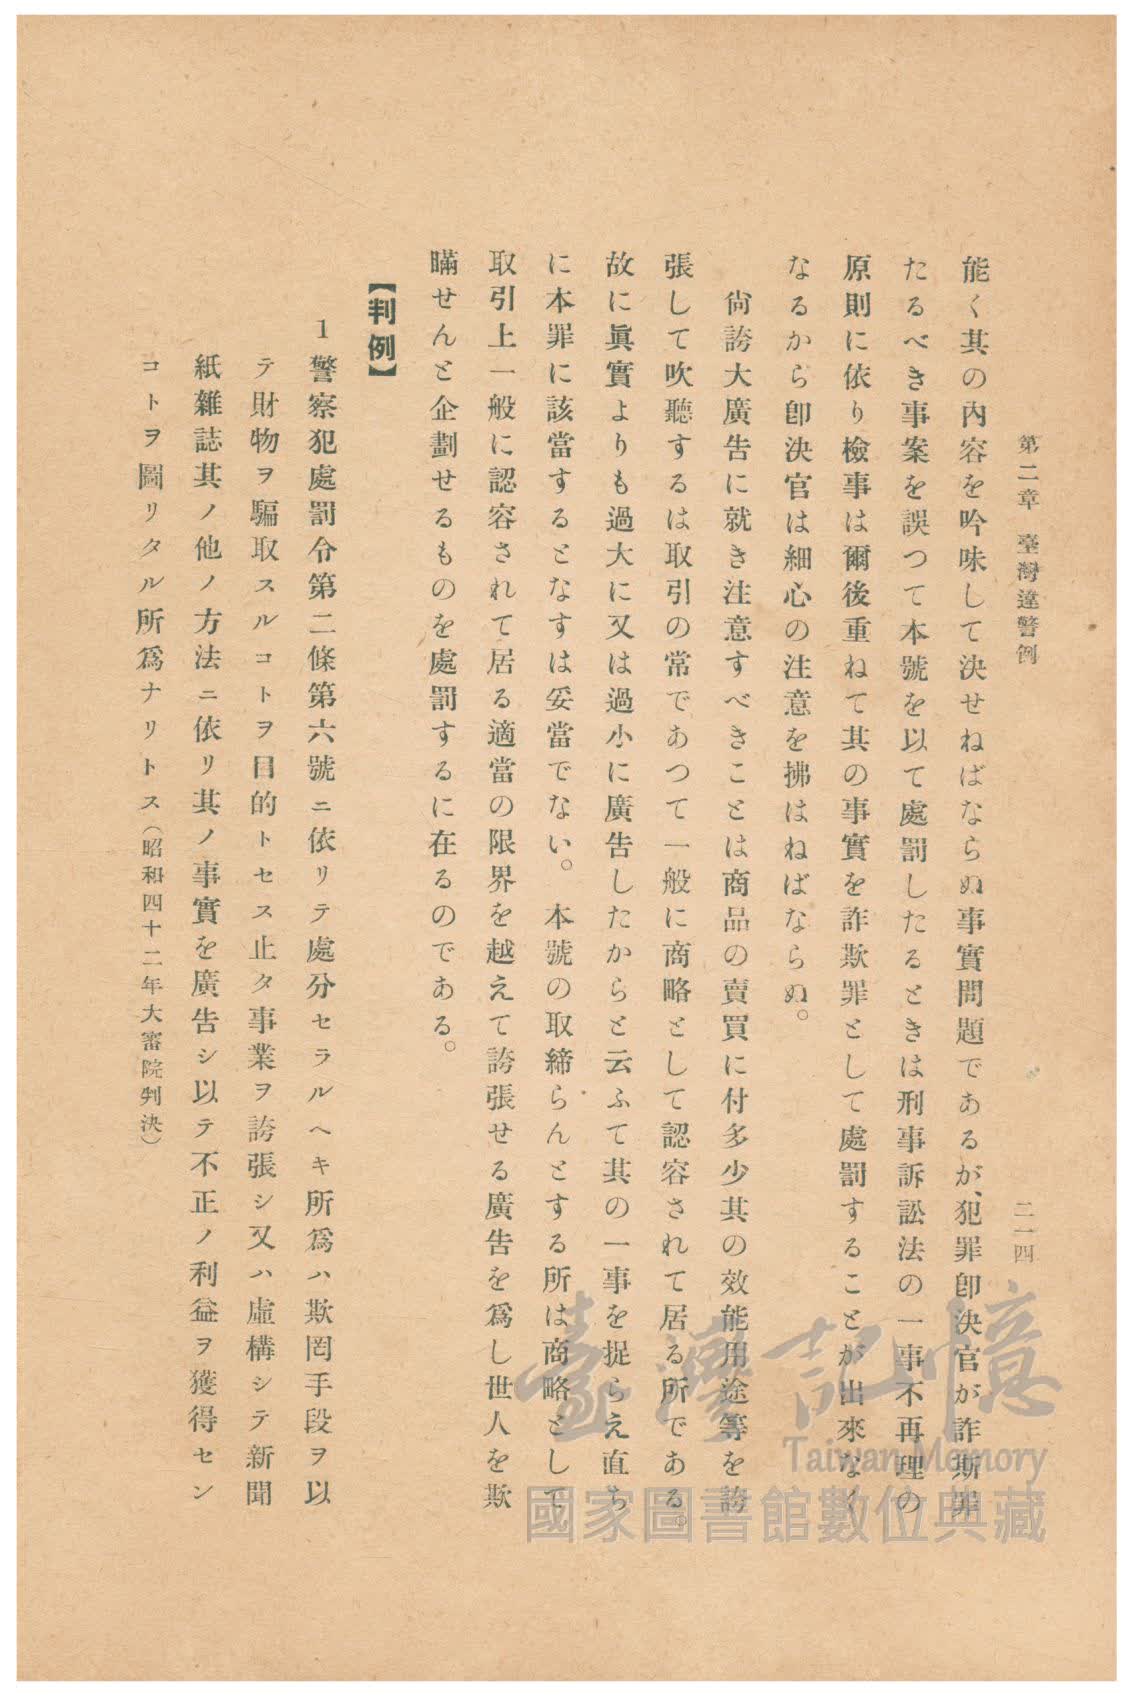 第二章 臺灣違警例
二一四
能く其の內容を吟味して決せねばならぬ事實問題であるが、犯罪卽決官が詐斯罪
たるべき事案を誤つて本號を以て處罰したるときは刑事訴訟法の一事不再理の
原則に依り檢事は爾後重ねて其の事實を詐欺罪として處罰することが出來なく
なるから卽決官は細心の注意を拂はねばならぬ。
尙誇大廣告に就き注意すべきことは商品の賣買に付多少其の效能用途等を誇
張して吹聽するは取引の常であつて一般に商略として認容されて居る所である。
故に眞實よりも過大に又は過小に廣告したからと云ふて其の一事を捉らえ直ち
に本罪に該當するとなすは妥當でない。本號の取締らんとする所は商略として
取引上一般に認容されて居る適當の限界を越えて誇張せる廣告を爲し世人を欺
瞞せんと企劃せるものを處罰するに在るのである。
【判例】
1 警察犯處罰令第二條第六號ニ依リテ處分セラルヘキ所爲ハ欺罔手段ヲ以
テ財物ヲ騙取スルコトヲ目的トセス止タ事業ヲ誇張シ又ハ虛構シテ新聞
紙雜誌其ノ他ノ方法ニ依リ其ノ事實を廣告シ以テ不正ノ利益ヲ獲得セン
コトヲ圖リタル所爲ナリトス(昭和四十二年大審院判決)
臺灣記憶
Taiwan Memory
國家圖書館數位典藏